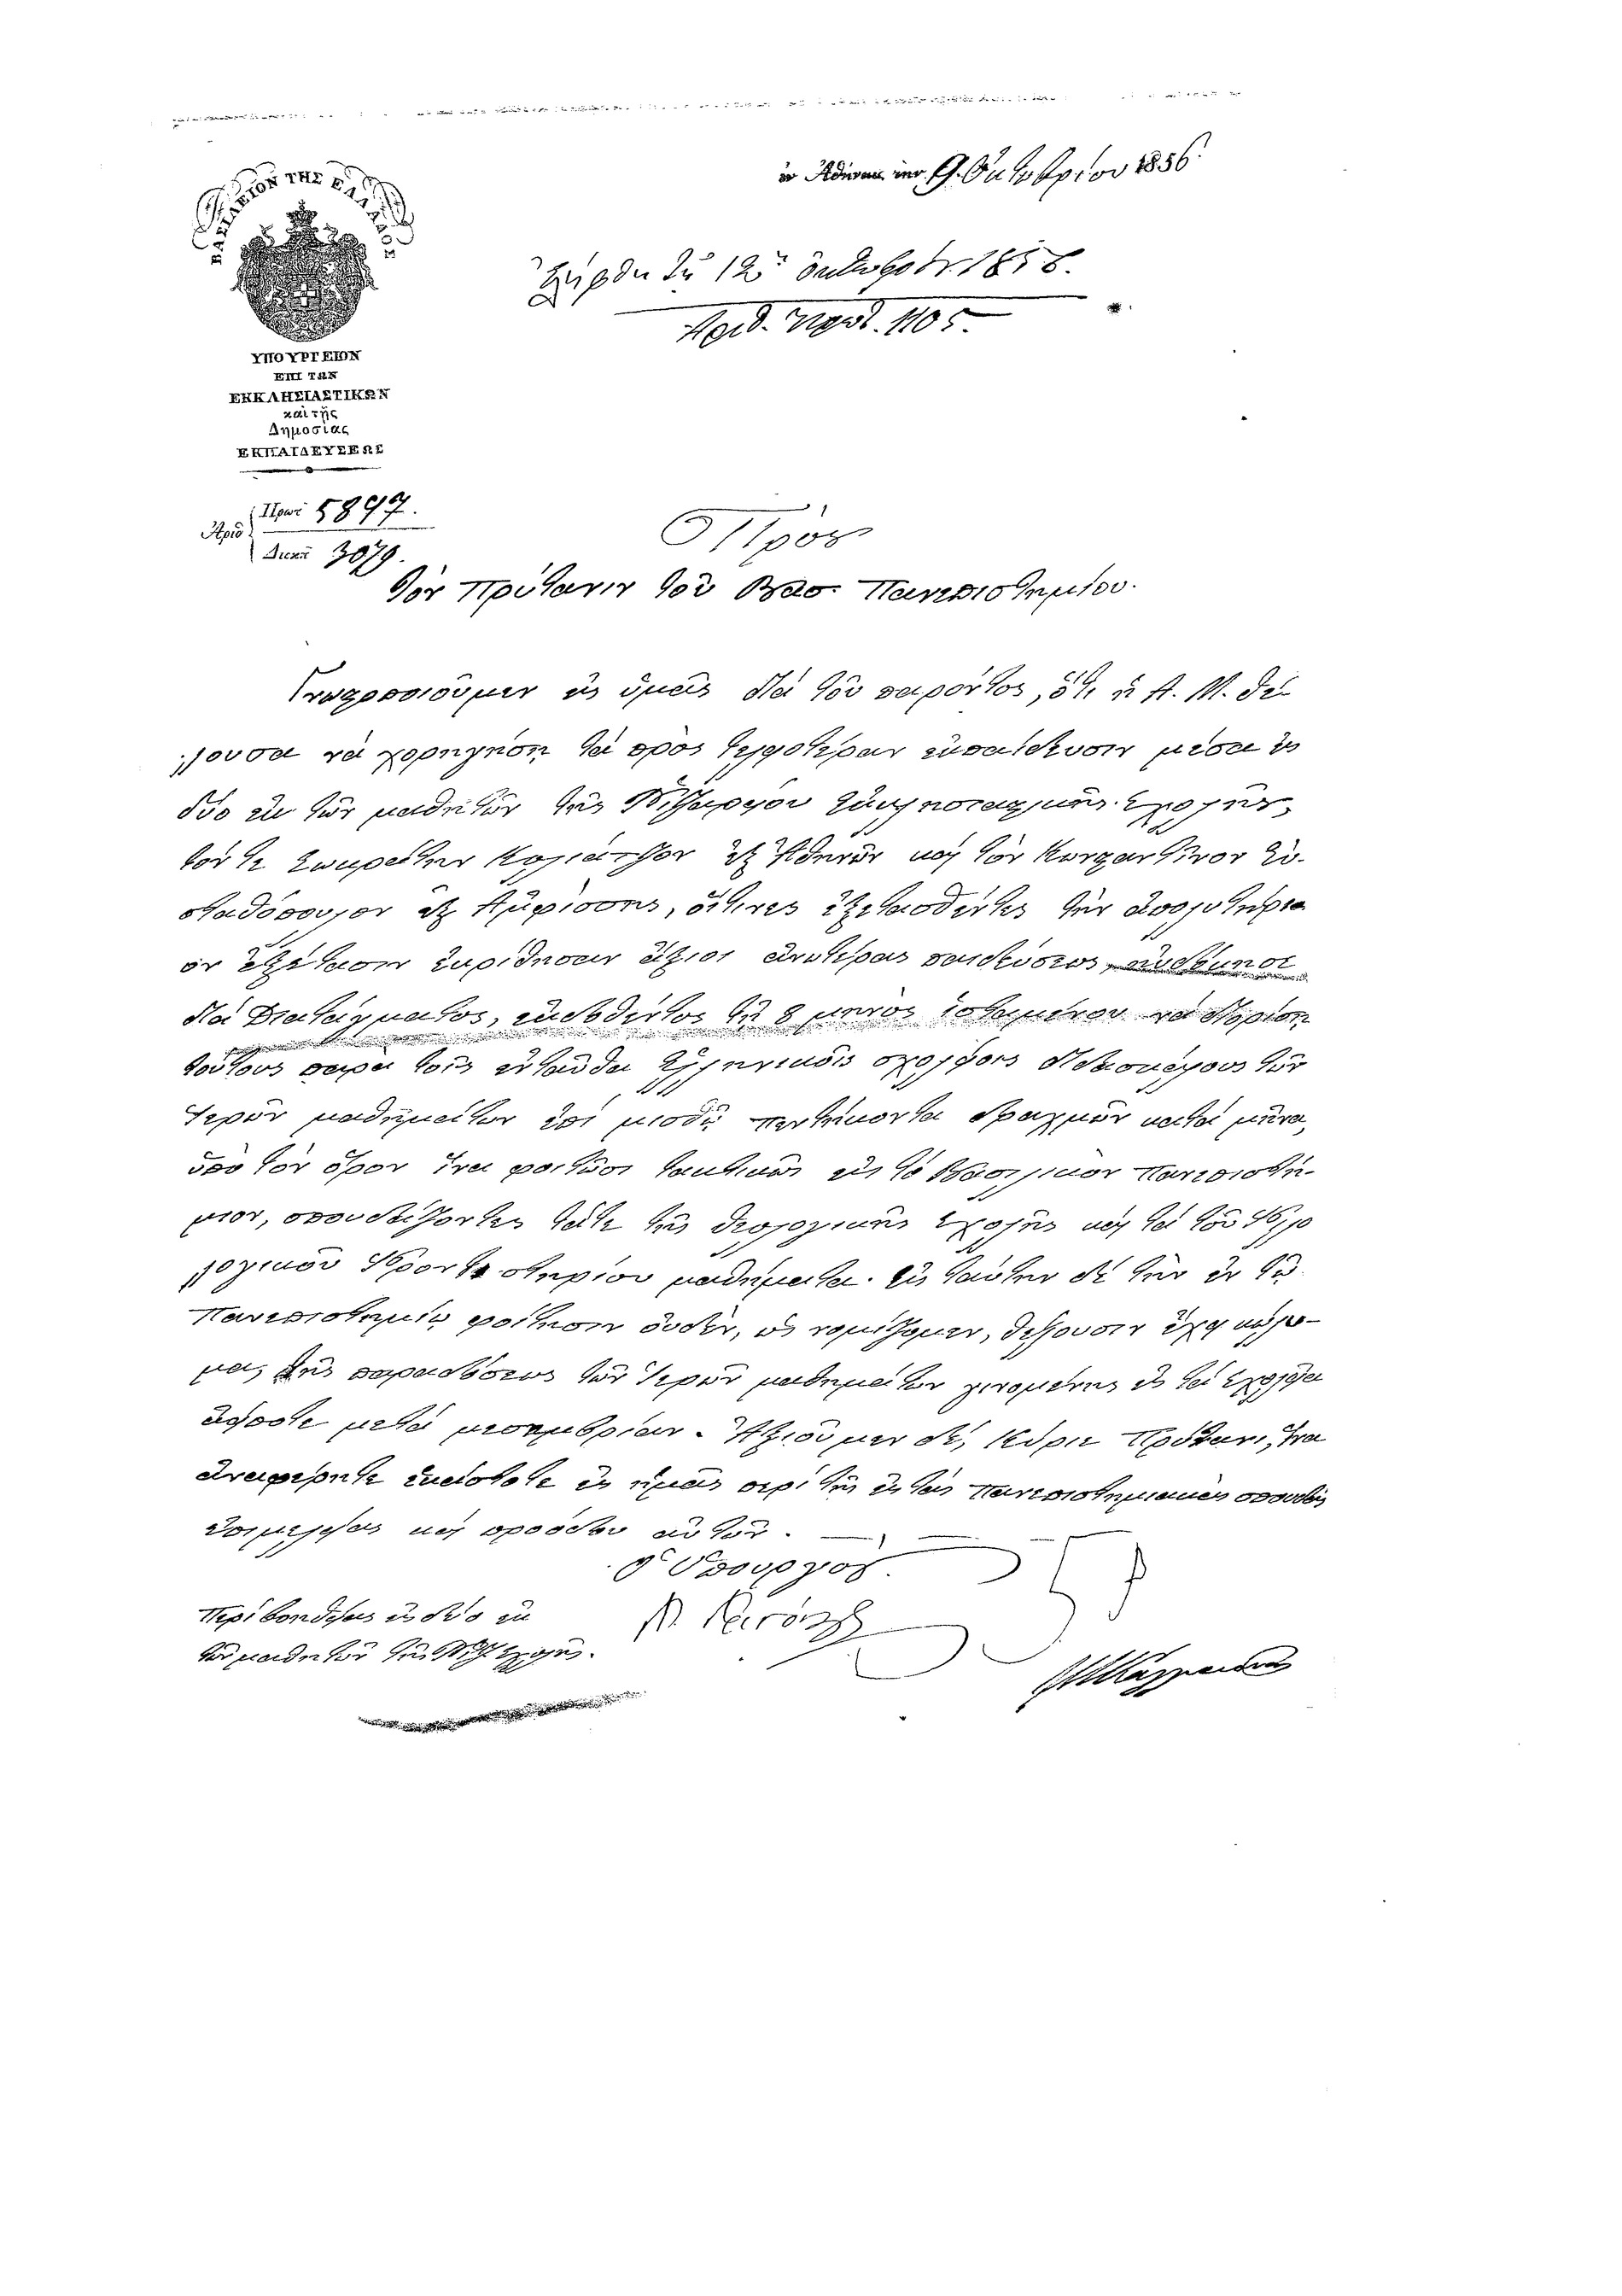 ΒΑΣΙΛΕΙΟΝ ΤΗΣ ΕΛΛΑΔΟΣ
ἐν Ἀθήναις τὴν 9. Ὀκτωβρίου 1856.
Ἐλήφθη τῇ 12 Ὀκτωβρίου 1856.
Ἀριθ. Πρωτ. 1105
ΥΠΟΥΡΓΕΙΟΝ
ΕΠΙ ΤΩΝ
ΕΚΚΛΗΣΙΑΣΤΙΚΩΝ
καὶ τῆς
Δημοσίας
ΕΚΠΑΙΔΕΥΣΕΩΣ
Ἀριθ. Πρωτ. 5897.
Διεκπ. 3079.
Πρὸς
τὸν Πρύτανιν τοῦ Βασ. Πανεπιστημίου.
Γνωστοποιοῦμεν εἰς ὑμᾶς διὰ τοῦ παρόντος, ὅτι ἡ Α. Μ. θέ-
λουσα νὰ χορηγήσῃ τὰ πρὸς τελειοτέραν ἐκπαίδευσιν μέσα εἰς
δύο ἐκ τῶν μαθητῶν τῆς Ῥιζαρείου Ἐκκλησιαστικῆς Σχολῆς,
τόν τε Σωκράτην Κολιάτσον ἐξ Ἀθηνῶν καὶ τὸν Κωνσταντῖνον Εὐ-
σταθόπουλον ἐξ Ἀμφίσσης, οἵτινες ἐξετασθέντες τὴν ἀπολυτήρι-
ον ἐξέτασιν ἐκρίθησαν ἄξιοι ἀνωτέρας παιδεύσεως, εὐδόκησε
διὰ Διατάγματος, ἐκδοθέντος τῇ 8 μηνὸς ἱσταμένου νὰ διορίσῃ
τούτους παρὰ τοῖς ἐνταῦθα Ἑλληνικοῖς σχολείοις διδασκάλους τῶν
Ἱερῶν μαθημάτων ἐπὶ μισθῷ πεντήκοντα δραχμῶν κατὰ μῆνα,
ὑπὸ τὸν ὅρον ἵνα φοιτῶσι τακτικῶς εἰς τὸ Βασιλικὸν Πανεπιστή-
μιον, σπουδάζοντες τά τε τῆς Θεολογικῆς Σχολῆς καὶ τὰ τοῦ Φιλο
λογικοῦ Φροντιστηρίου μαθήματα. Εἰς ταύτην δὲ τὴν ἐν τῷ
Πανεπιστημίῳ φοίτησιν οὐδέν, ὡς νομίζομεν, θέλουσιν ἔχει κώλυ-
μα, τῆς παραδόσεως τῶν Ἱερῶν μαθημάτων γινομένης εἰς τὰ Σχολεῖα
ἄλλοτε μετὰ μεσημβρίαν. Ἀξιοῦμεν δέ, Κύριε Πρύτανι, ἵνα
ἀναφέρητε ἑκάστοτε εἰς ἡμᾶς περὶ τῆς εἰς τὰς Πανεπιστημιακὰς σπουδὰς
ἐπιμελείας καὶ προόδου αὐτῶν.
Ὁ Ὑπουργὸς
Περὶ βοηθείας εἰς δύο ἐκ
τῶν μαθητῶν τῆς Ῥιζ. Σχολῆς.